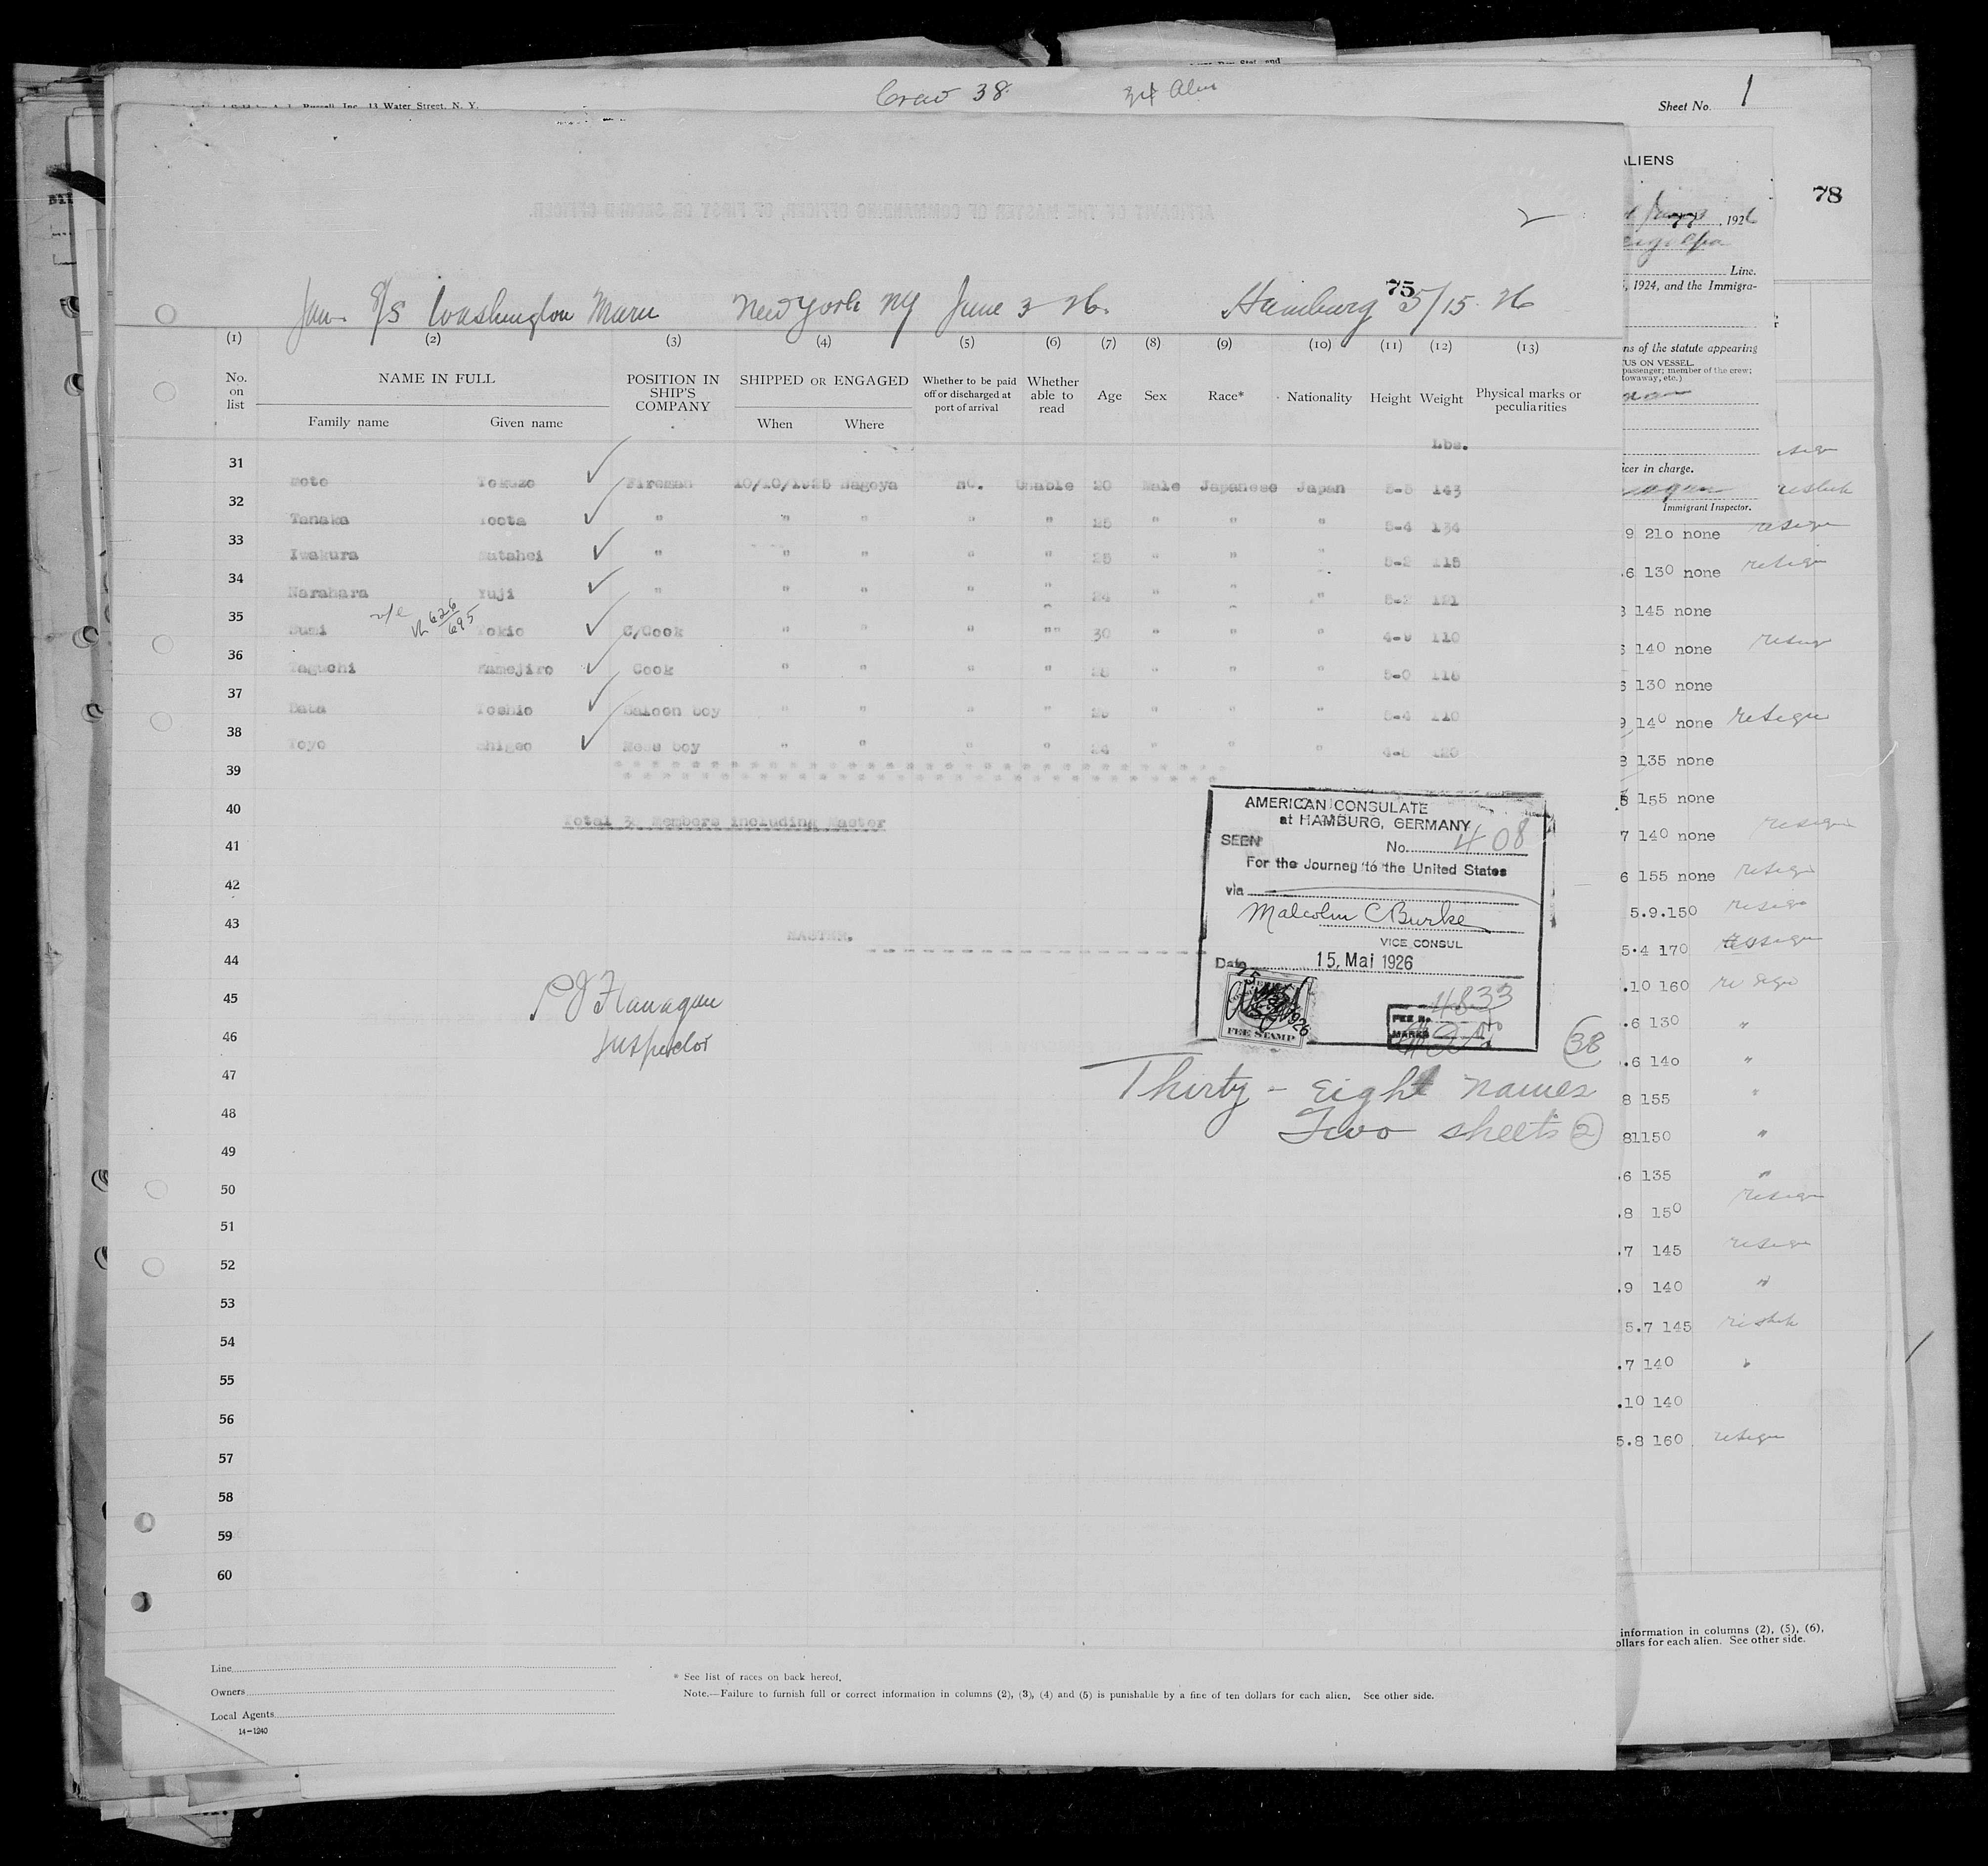 Crew 38
Sheet No. 1
Russell Inc., 13 Water Street, N. Y.
ALIENS
78
AFFIDAVIT OF THE MASTER OF COMMANDING OFFICER, OF FIRST OR SECOND OFFICER.
, 1926
Line.
75
Jap. S/S Washington Maru New York NY June 3 26. Hamburg 5/15 26
, 1924, and the Immigra-
(1) (2) (3) (4) (5) (6) (7) (8) (9) (10) (11) (12) (13)
No. on list NAME IN FULL POSITION IN SHIP'S COMPANY SHIPPED OR ENGAGED Whether to be paid off or discharged at port of arrival Whether able to read Age Sex Race* Nationality Height Weight Physical marks or peculiarities
Family name Given name When Where
ns of the statute appearing
US ON VESSEL.
passenger; member of the crew;
towaway, etc.)
icer in charge.
Immigrant Inspector.
Lbs.
31 Moto Tokuzo Fireman 10/10/1925 Nagoya NO. Unable 20 Male Japanese Japan 5-5 143
32 Tanaka Toota " " " " " 25 " " " 5-4 134
33 Iwakura Matahei " " " " " 25 " " " 5-2 115
34 Narahara Yuji " " " " " 24 " " " 5-2 121
35 Sumi Tokio C/Cook " " " "" 30 " " " 4-9 110
626
695
36 Taguchi Kamejiro Cook " " " " 28 " " " 5-0 118
37 Bata Toshio Saloon boy " " " " " " " 5-4 110
38 Toyo Shigeo Mess boy " " " " 24 " " " 120
39
40 Total 38 Members including Master
41
42
43 MASTER.
44
45 P J Flanagan
46 Inspector
47
48
49
50
51
52
53
54
55
56
57
58
59
60
AMERICAN CONSULATE
at HAMBURG, GERMANY
SEEN No. 408
For the Journey to the United States
via
Malcolm C Burke
VICE CONSUL
Date 15. Mai 1926
4833
FEE No.
MARKS
FEE STAMP
38
Thirty - Eight Names
Two sheets 2
9 210 none
.6 130 none
145 none
140 none
130 none
140 none
135 none
155 none
7 140 none
6 155 none
5.9.150
5.4 170
.10 160
.6 130
.6 140
8 155
81150
.6 135
.8 150
.7 145
.9 140
5.7 145
.7 140
.10 140
5.8 160
information in columns (2), (5), (6),
ollars for each alien. See other side.
Line
Owners
Local Agents
14-1240
* See list of races on back hereof.
Note.—Failure to furnish full or correct information in columns (2), (3), (4) and (5) is punishable by a fine of ten dollars for each alien. See other side.